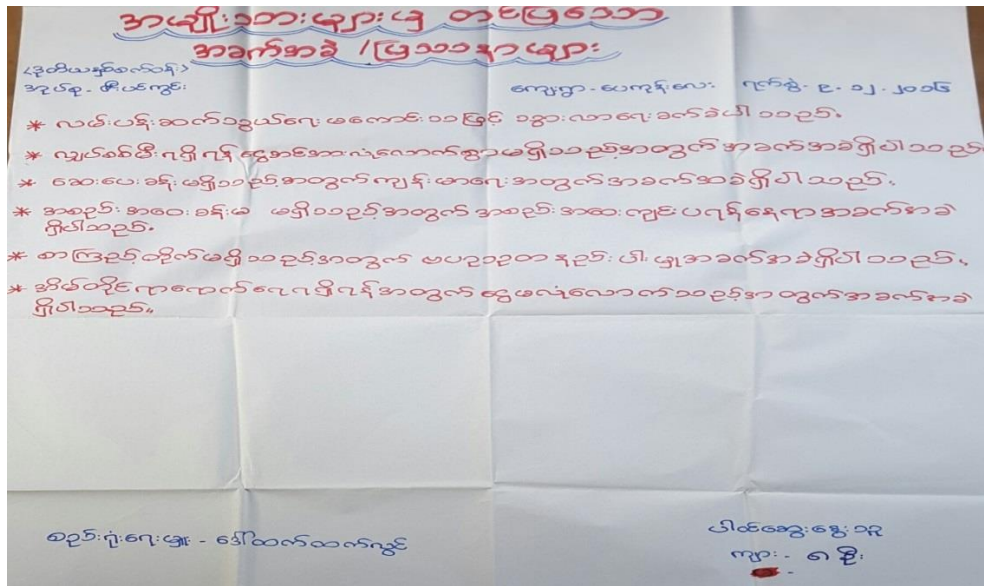 အမျိုးသားများမှ တင်ပြသော
အခက်အခဲ /ပြဿနာများ
<ဒုတိယနှစ်စက်ဝန်း>
အုပ်စု - ဇီးပင်ကွင်း ကျေးရွာ -ပေကုန်းလေး ရက်စွဲ - ၉ - ၁၂ - ၂၀၁၆
* လမ်းပန်းဆက်သွယ်ရေး မကောင်းသဖြင့် သွားလာရေးခက်ခဲပါသည်။
* လျှပ်စစ်မီးရရှိရန် ငွေအင်အားလုံလောက်စွာမရှိသည့်အတွက် အခက်အခဲရှိပါသည်
* ဆေးပေးခန်းမရှိသည့်အတွက်ကျန်းမာရေးအတွက်အခက်အခဲရှိပါသည်။
* အစည်းအဝေးခန်းမ မရှိသည့်အတွက် အစည်းအဝေးကျင်းပရန်နေရာအခက်အခဲ
ရှိပါသည်။
* စာကြည့်တိုက်မရှိသည့်အတွက် ဗဟုသုတ နည်းပါးမှုအခက်အခဲရှိပါသည်။
* အိမ်တိုင်ရာရောက်ရေရရှိရန်အတွက် ငွေမလုံလောက်သည့်အတွက်အခက်အခဲ
ရှိပါသည်။
စည်းရုံးရေးမှူး - ဒေါ်ထက်ထက်လွင် ပါဝင်ဆွေးနွေးသူ
ကျား - ၈ ဦး